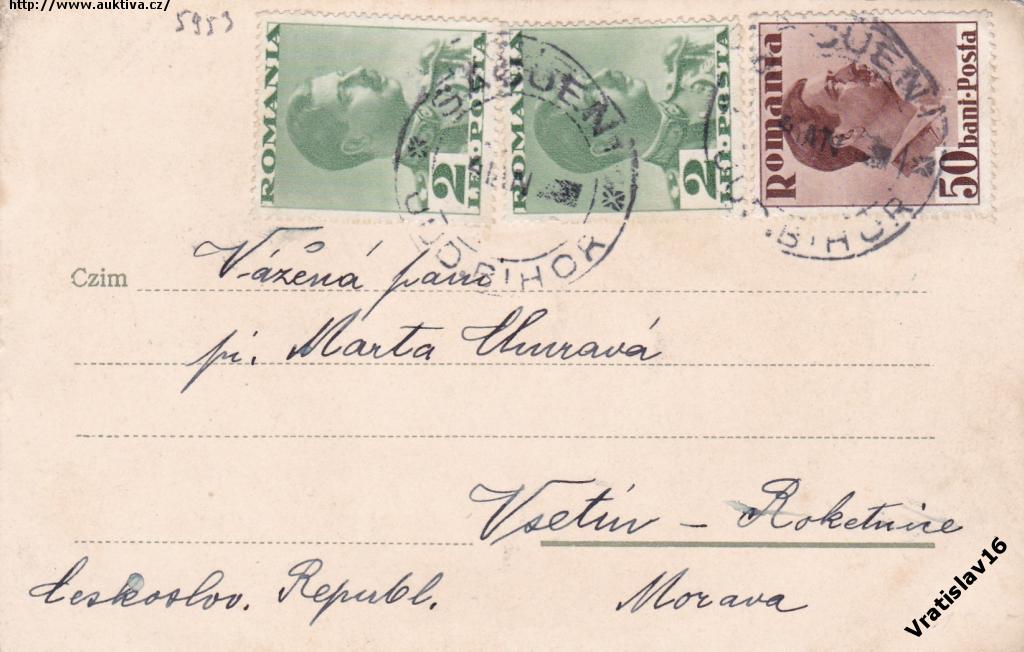 http://www.auktiva.cz/
5953
ROMANIA
2
LEI·POSTA
ROMANIA
2
LEI·POSTA
Romania
50
bani·Posta
JUD. BIHOR
Czim
Vážená paní
pí. Marta
Vsetín – Roketnice
Českoslov. Republ. Morava
Vratislav16